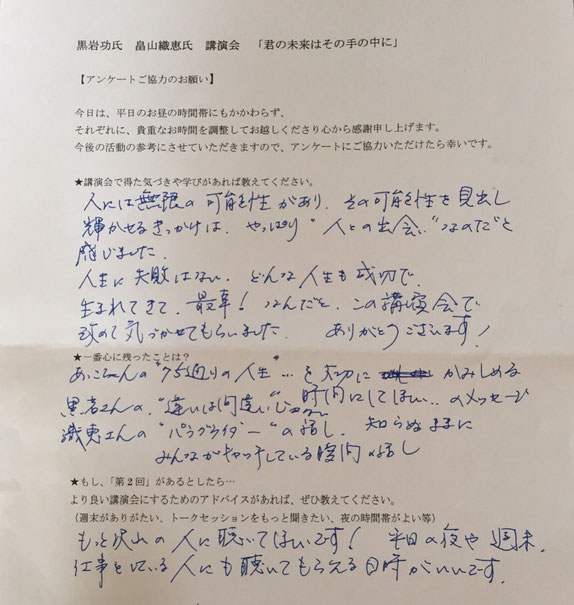 黒岩功氏　畠山織恵氏　講演会　「君の未来はその手の中に」
【アンケートご協力のお願い】
今日は、平日のお昼の時間帯にもかかわらず、
それぞれに、貴重なお時間を調整してお越しくださり心から感謝申し上げます。
今後の活動の参考にさせていただきますので、アンケートにご協力いただけたら幸いです。
★講演会で得た気づきや学びがあれば教えてください。
人には無限の可能性があり、その可能性を見出し
輝かせるきっかけは、やっぱり"人との出会い"なのだと
感じました。
人生に失敗はない、どんな人生も成功で、
生まれてきて、最幸！なんだと、この講演会で
改めて気づかせてもらいました。　ありがとうございます！
★一番心に残ったことは？
あっこちゃんの"75通りの人生"…を大切に かみしめる
時間にしてほしい..のメッセージ
黒岩さんの、"違いは間違いじゃない
織恵さんの"パラグライダー"の話し、知らぬままに
みんながキャッチしている瞬間の話し
★もし、「第２回」があるとしたら…
より良い講演会にするためのアドバイスがあれば、ぜひ教えてください。
（週末がありがたい、トークセッションをもっと聞きたい、夜の時間帯がよい等）
もっと沢山の人に聴いてほしいです！　平日の夜や週末、
仕事をしている人にも聴いてもらえる日時がいいです。